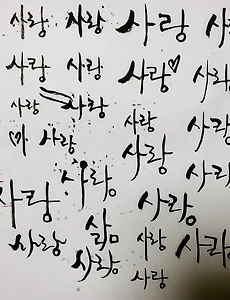 사랑 사랑 사랑 사
사랑 사랑 사랑♡ 사랑
사랑 사랑 사랑
사랑 사랑 사랑
사랑 사랑 사랑
사랑 사랑
사랑 사랑 사랑
사랑 사랑